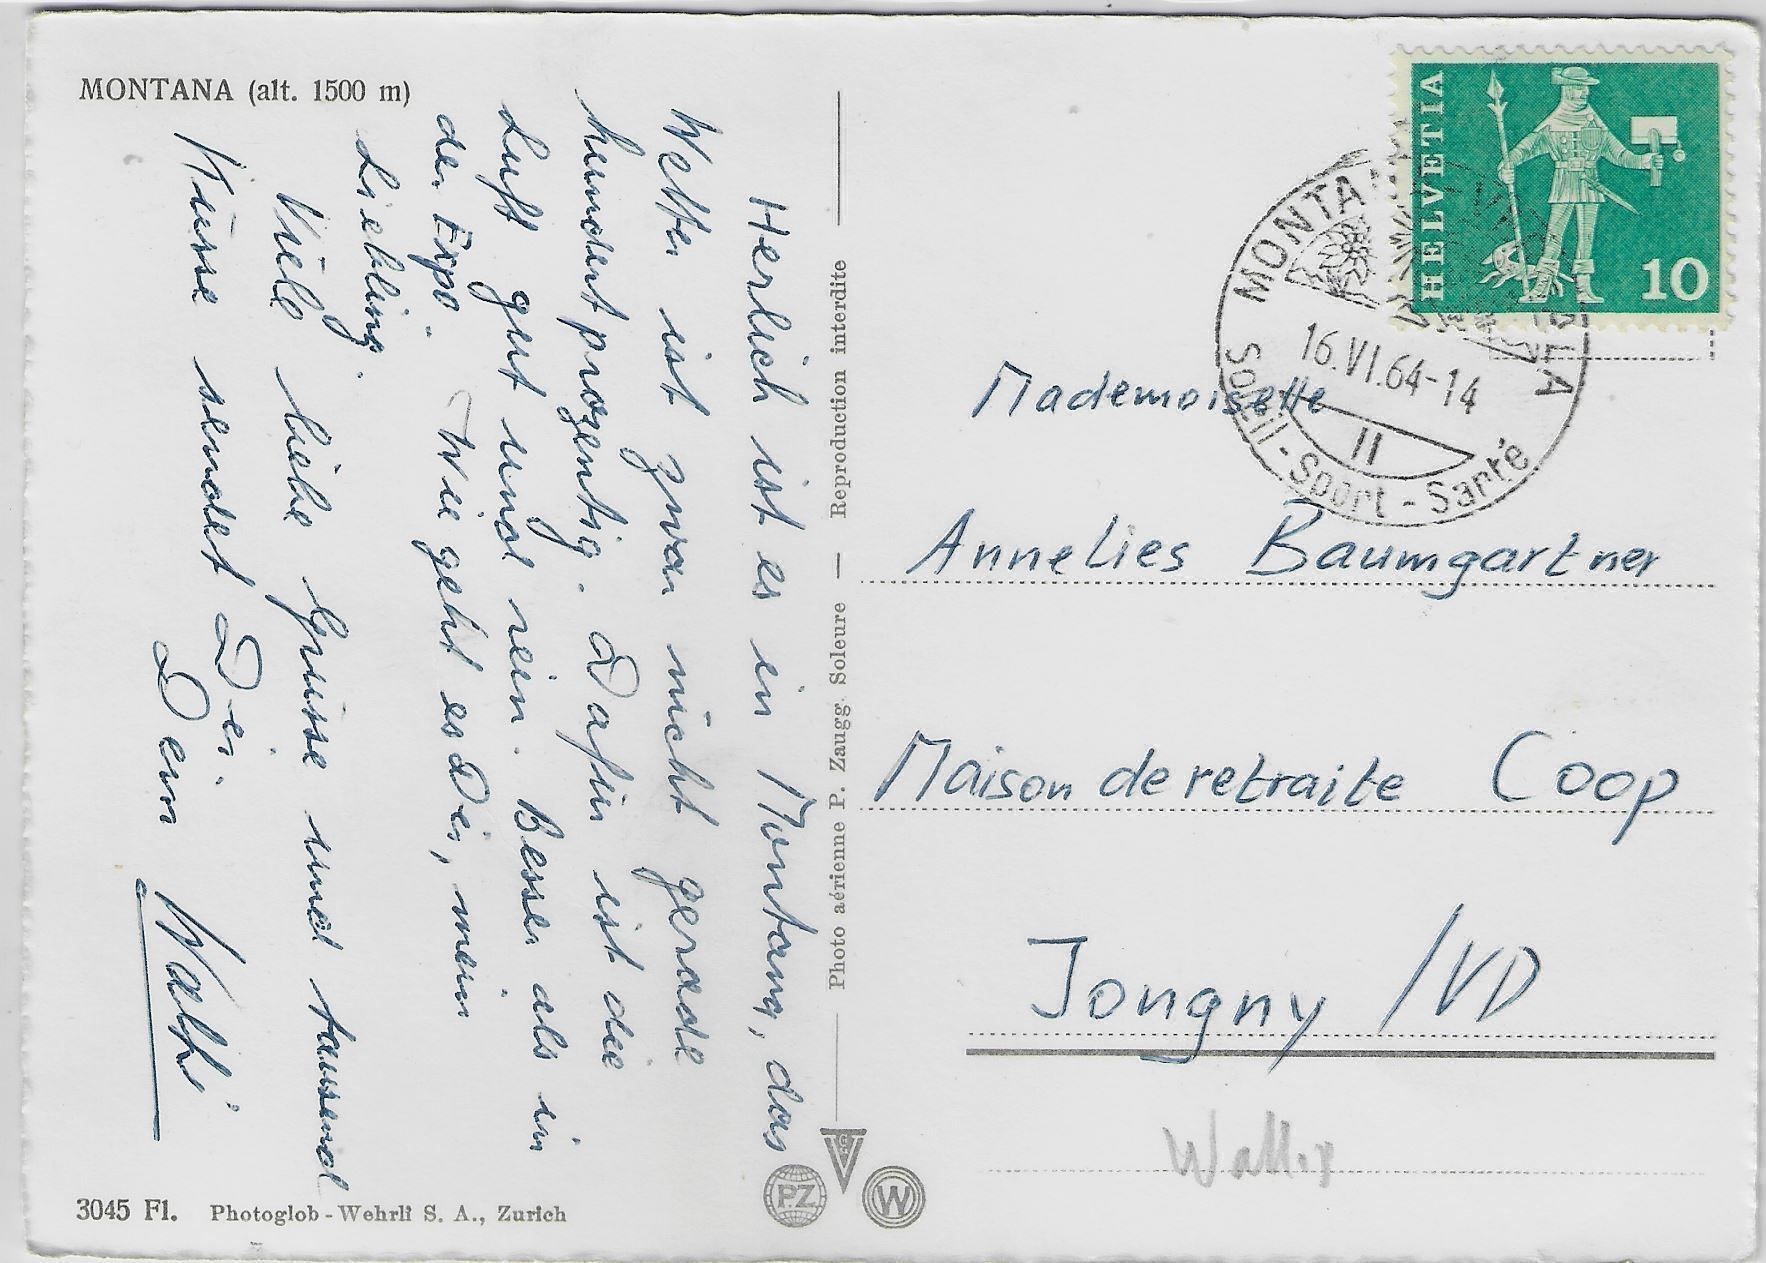 MONTANA (alt. 1500 m)
Herlich ist es in Montana, das
Wetter ist zwar nicht gerade
hundertprozentig. Dafür ist die
Luft gut und rein. Besser als in
der Expo. Wie geht es Dir, mein
Liebling.
Viele liebe Grüsse und tausend
Küsse sendet Dir.
Dein Walti
3045 Fl. Photoglob-Wehrli S. A., Zurich
Photo aérienne P. Zaugg. Soleure — Reproduction interdite
PZ
W
HELVETIA
10
MONTANA
16.VI.64-14
II
Soleil-Sport-Santé
Mademoiselle
Annelies Baumgartner
Maison de retraite Coop
Jongny /VD